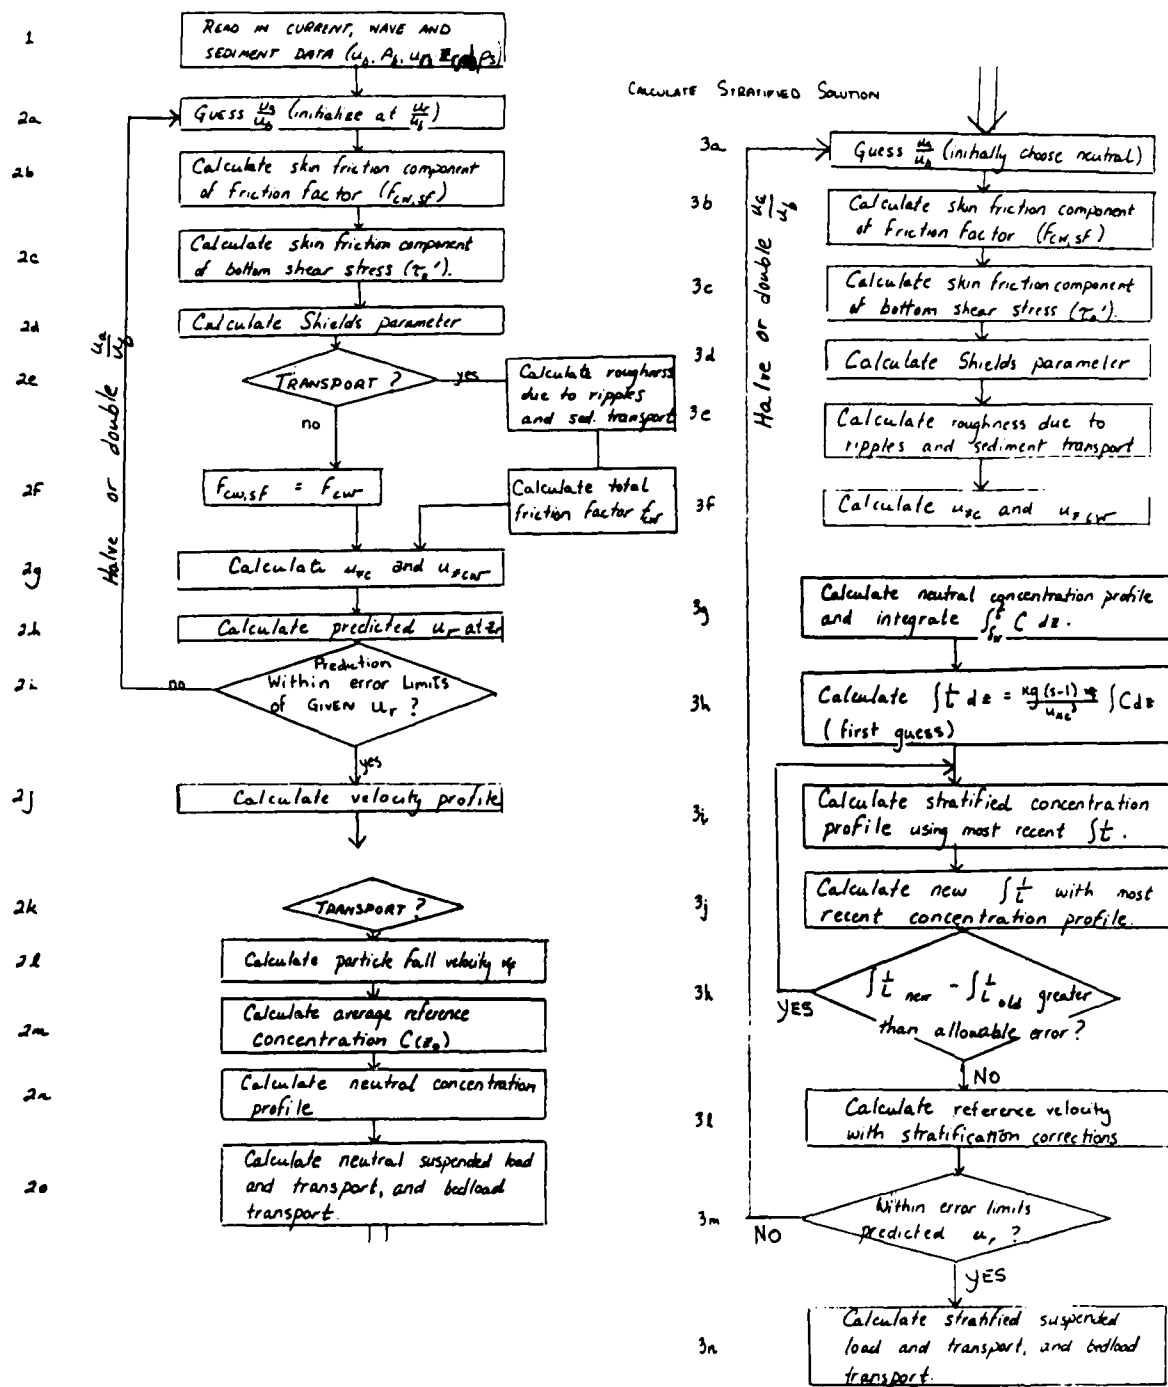 1
READ IN CURRENT, WAVE AND
SEDIMENT DATA (u_b, A_b, u_r,
2a
GUESS u_a/u_b (initialize at u_r/u_b)
2b
Calculate skin friction component
of friction factor (f_cw,sf)
2c
Calculate skin friction component
of bottom shear stress (τ_o').
2d
Calculate Shields parameter
2e
TRANSPORT ?
yes
no
Calculate roughness
due to ripples
and sed. transport
2f
f_cw,sf = f_cw
Calculate total
friction factor f_cw
2g
Calculate u_*c and u_*cw
2h
Calculate predicted u_r at z_r
2i
Prediction
Within error Limits
of GIVEN u_r ?
no
yes
Halve or double u_a/u_b
2j
Calculate velocity profile
2k
TRANSPORT ?
2l
Calculate particle fall velocity w_f
2m
Calculate average reference
concentration C(z_o)
2n
Calculate neutral concentration
profile
2o
Calculate neutral suspended load
and transport, and bedload
transport.
CALCULATE STRATIFIED SOLUTION
3a
Guess u_a/u_b (initially choose neutral)
3b
Calculate skin friction component
of friction factor (f_cw,sf)
3c
Calculate skin friction component
of bottom shear stress (τ_o').
3d
Calculate Shields parameter
3e
Calculate roughness due to
ripples and sediment transport
3f
Calculate u_*c and u_*cw
Halve or double u_a/u_b
3g
Calculate neutral concentration profile
and integrate ∫ C dz.
3h
Calculate ∫ 1/L dz = κg(s-1)w_f/u_*c³ ∫ C dz
( first guess)
3i
Calculate stratified concentration
profile using most recent ∫ 1/L .
3j
Calculate new ∫ 1/L with most
recent concentration profile.
3k
∫ 1/L new - ∫ 1/L old greater
than allowable error ?
YES
NO
3l
Calculate reference velocity
with stratification corrections
3m
Within error limits
predicted u_r ?
NO
YES
3n
Calculate stratified suspended
load and transport, and bedload
transport.